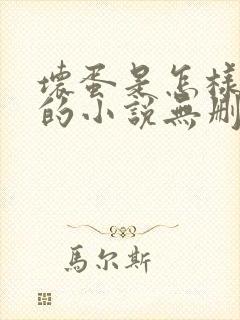 壞蛋是怎樣
的小說無刪
馬尔斯